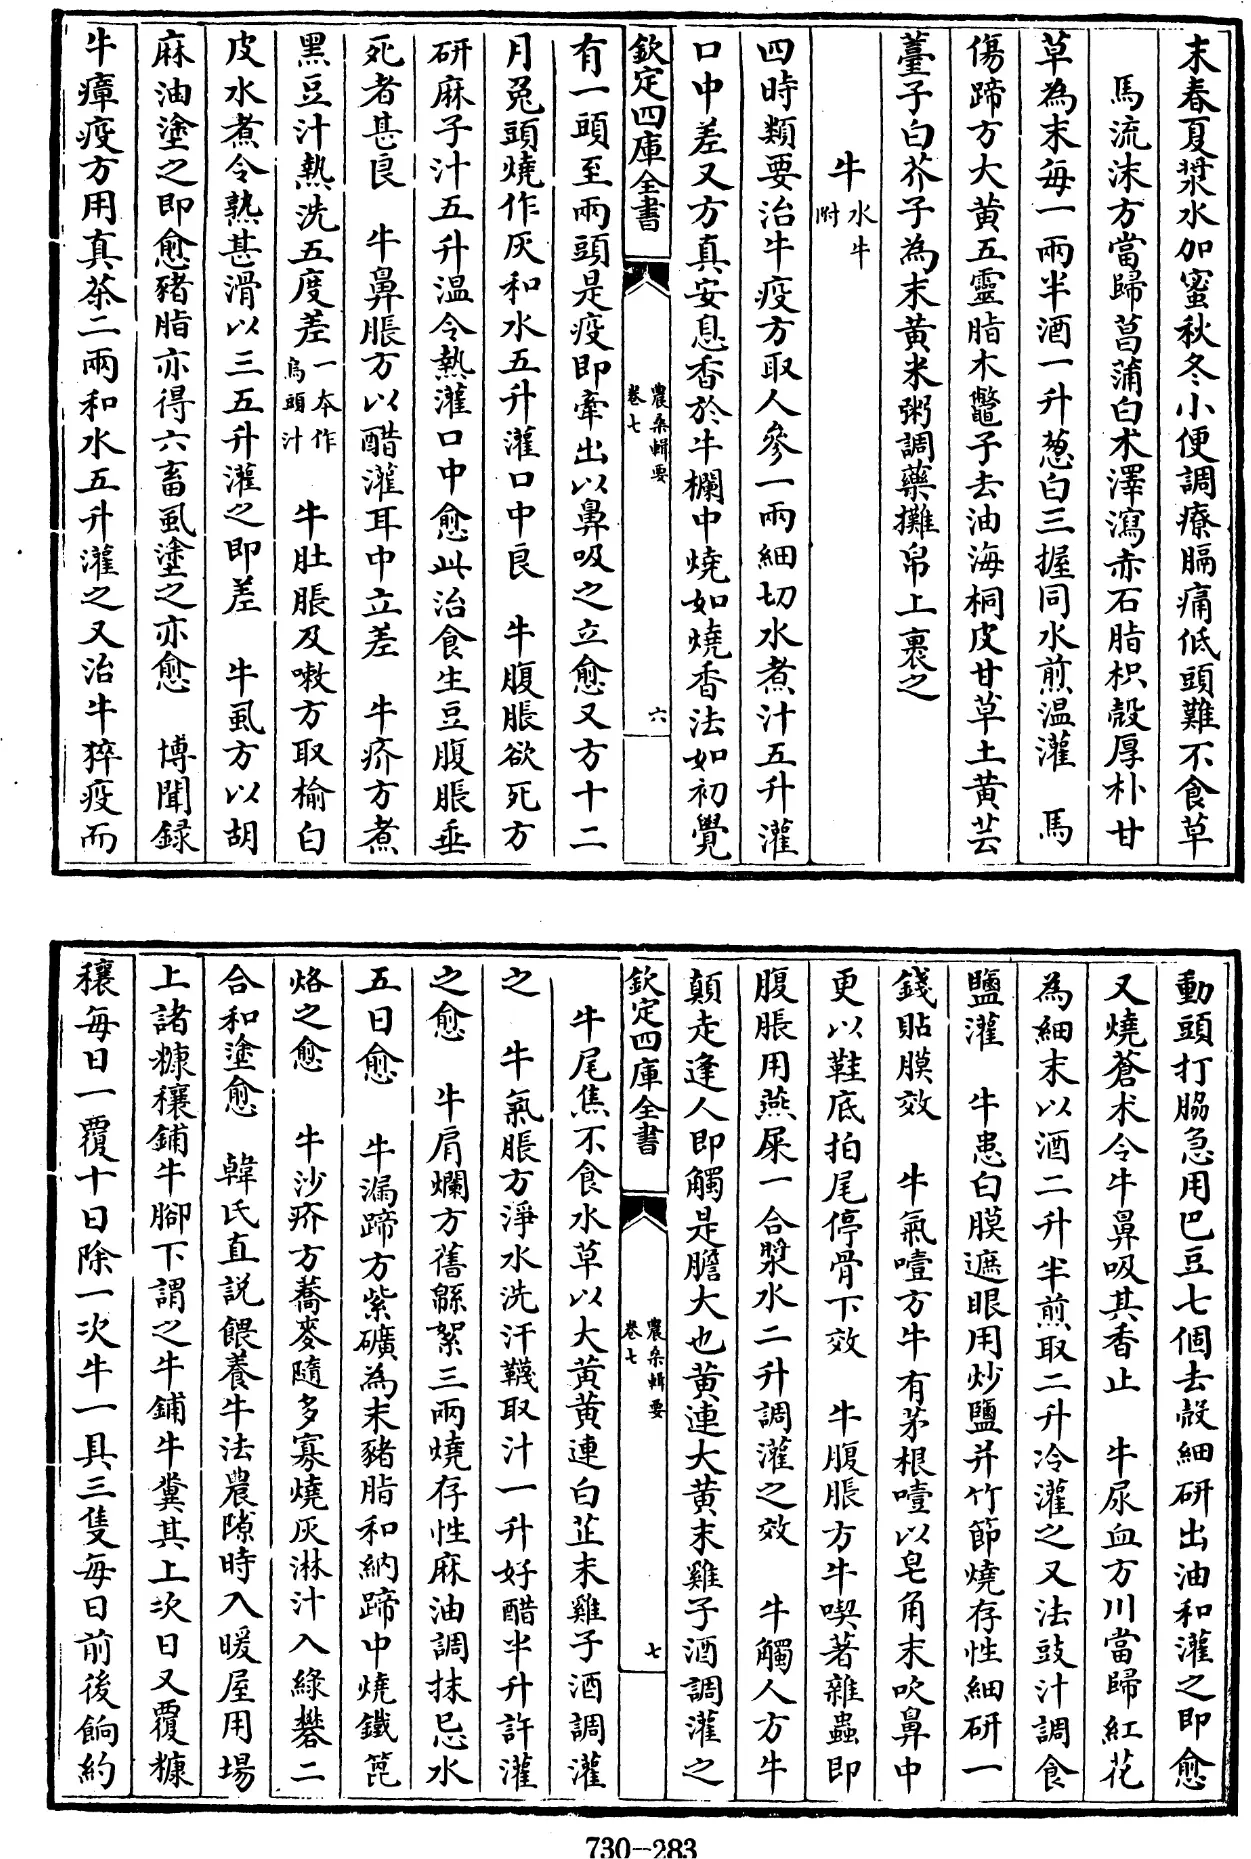 末春夏漿水加蜜秋冬小便調療膈痛低頭難不食草
馬流沫方當歸菖蒲白术澤瀉赤石脂枳殼厚朴甘
草為末每一兩半酒一升葱白三握同水煎温灌　馬
傷蹄方大黄五靈脂木鼈子去油海桐皮甘草土黄芸
薹子白芥子為末黄米粥調藥攤帛上裹之
牛水牛附
四時類要治牛疫方取人參一兩細切水煮汁五升灌
口中差又方真安息香於牛欄中燒如燒香法如初覺
欽定四庫全書　農桑輯要卷七　六
有一頭至兩頭是疫即牽出以鼻吸之立愈又方十二
月兎頭燒作灰和水五升灌口中良　牛腹脹欲死方
研麻子汁五升温令熱灌口中愈此治食生豆腹脹垂
死者甚良　牛鼻脹方以醋灌耳中立差　牛疥方煮
黑豆汁熱洗五度差一本作烏頭汁　牛肚脹及嗽方取榆白
皮水煮令熟甚滑以三五升灌之即差　牛虱方以胡
麻油塗之即愈豬脂亦得六畜虱塗之亦愈　博聞録
牛瘴疫方用真茶二兩和水五升灌之又治牛猝疫而
動頭打脇急用巴豆七個去殼細研出油和灌之即愈
又燒蒼术令牛鼻吸其香止　牛尿血方川當歸紅花
為細末以酒二升半煎取二升冷灌之又法豉汁調食
鹽灌　牛患白膜遮眼用炒鹽并竹節燒存性細研一
錢貼膜效　牛氣噎方牛有茅根噎以皂角末吹鼻中
更以鞋底拍尾停骨下效　牛腹脹方牛喫著雜蟲即
腹脹用燕屎一合漿水二升調灌之效　牛觸人方牛
顛走逢人即觸是膽大也黄連大黄末雞子酒調灌之
欽定四庫全書　農桑輯要卷七　七
牛尾焦不食水草以大黄黄連白芷末雞子酒調灌
之　牛氣脹方淨水洗汗韈取汁一升好醋半升許灌
之愈　牛肩爛方舊緜絮三兩燒存性麻油調抹忌水
五日愈　牛漏蹄方紫礦為末豬脂和納蹄中燒鐵箆
烙之愈　牛沙疥方蕎麥隨多寡燒灰淋汁入綠礬二
合和塗愈　韓氏直説餵養牛法農隙時入暖屋用場
上諸糠穰鋪牛脚下謂之牛鋪牛糞其上次日又覆糠
穰每日一覆十日除一次牛一具三隻每日前後餉約
730-283